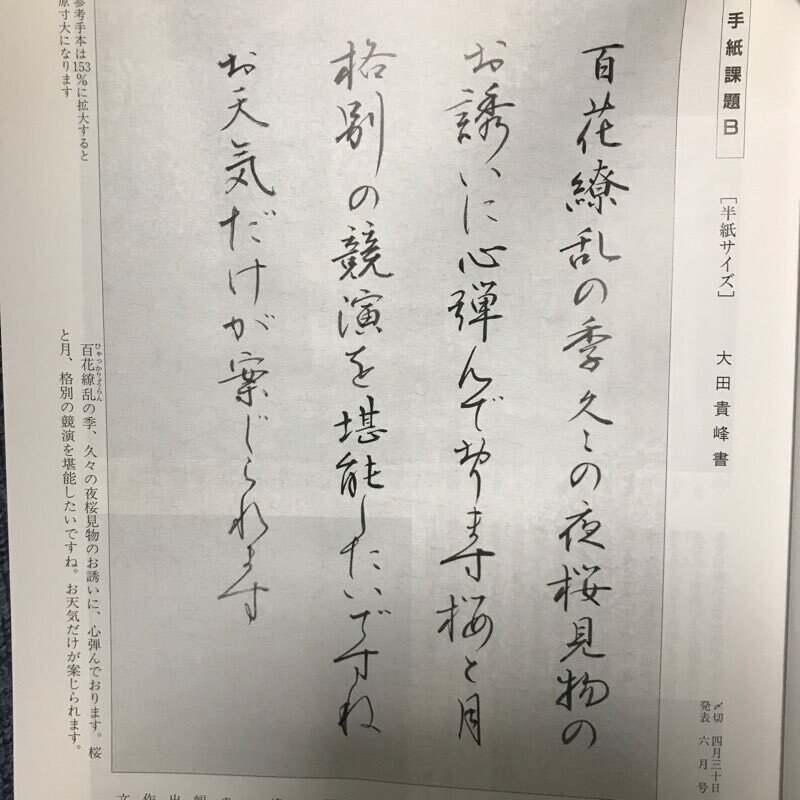 手紙課題B
［半紙サイズ］
大田貴峰書
〆切 四月三十日
発表 六月号
百花繚乱の季久々の夜桜見物の
お誘いに心弾んでおります桜と月
格別の競演を堪能したいですね
お天気だけが案じられます
ひゃっかりょうらん
百花繚乱の季、久々の夜桜見物のお誘いに、心弾んでおります。桜
と月、格別の競演を堪能したいですね。お天気だけが案じられます。
参考手本は153％に拡大すると
原寸大になります